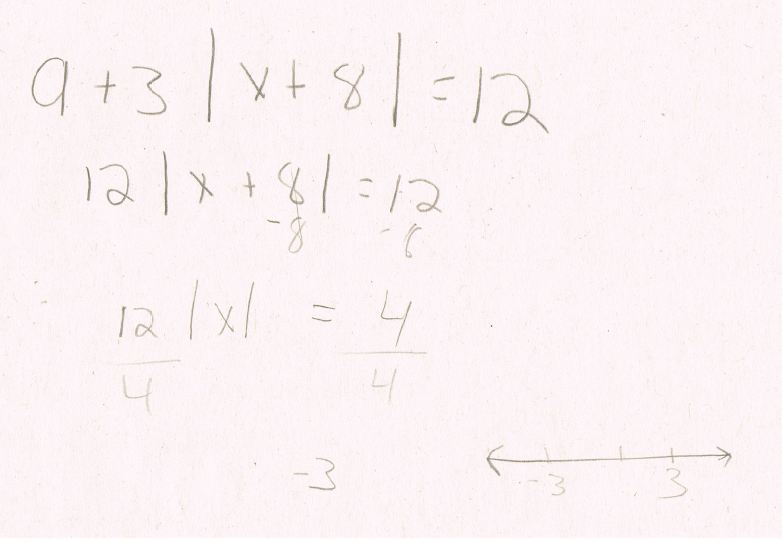 9 + 3 | x + 8 | = 12
12 | x + 8 | = 12
-8 -8
12 | x | = 4
4 4
-3
-3 3